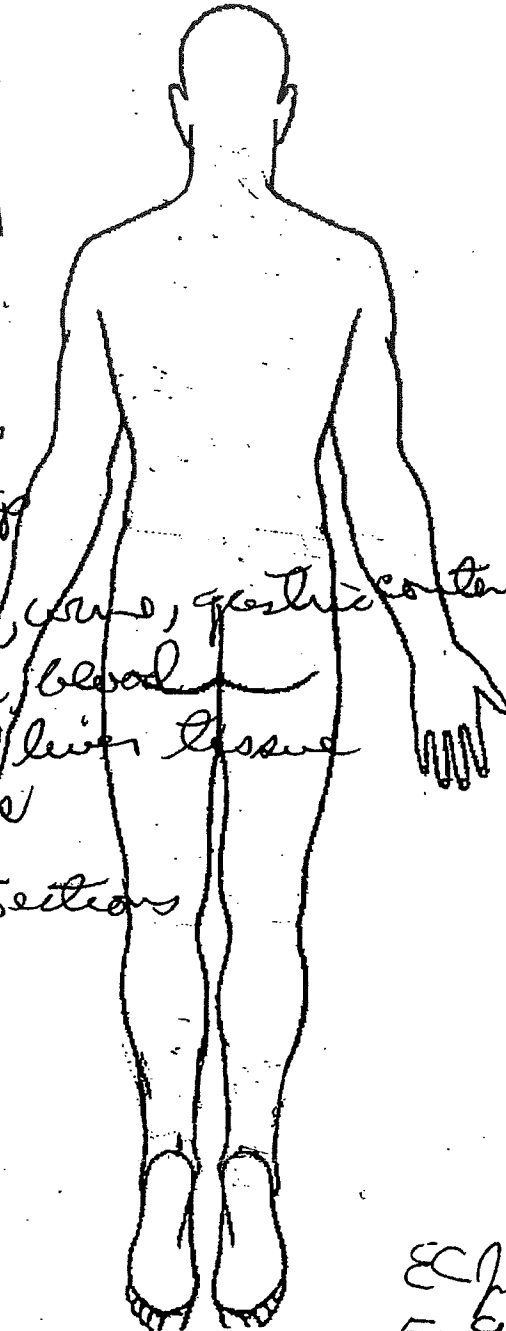 , urine, gastric conten
, blood
liver tissue
sections